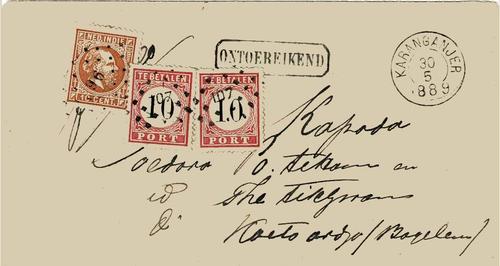 NED. INDIE
10 CENT.
TE BETALEN
10
PORT
TE BETALEN
10
PORT
ONTOEREIKEND
KARANGANJER
30
5
889
Kapada
Soedara O.
en
The
Koetoardjo (Bagelen)